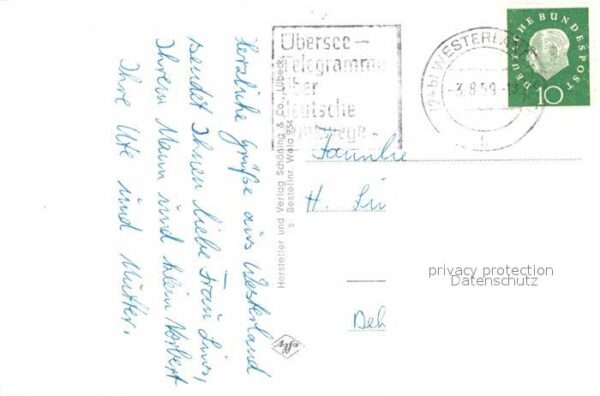 Herzliche Grüße aus Westerland
sendet Ihnen liebe Frau Lins,
Ihrem Mann und klein Norbert
Ihre Ute und Mutter.
Hersteller und Verlag Schöning & Co., Lübeck
s Bestellnr. Wela 234
Übersee-
telegramme
über
deutsche
Funkwege
(24b) WESTERLAND
-3.8.59.-
DEUTSCHE BUNDESPOST
10
Familie
H. Lin
Deh
privacy protection
Datenschutz